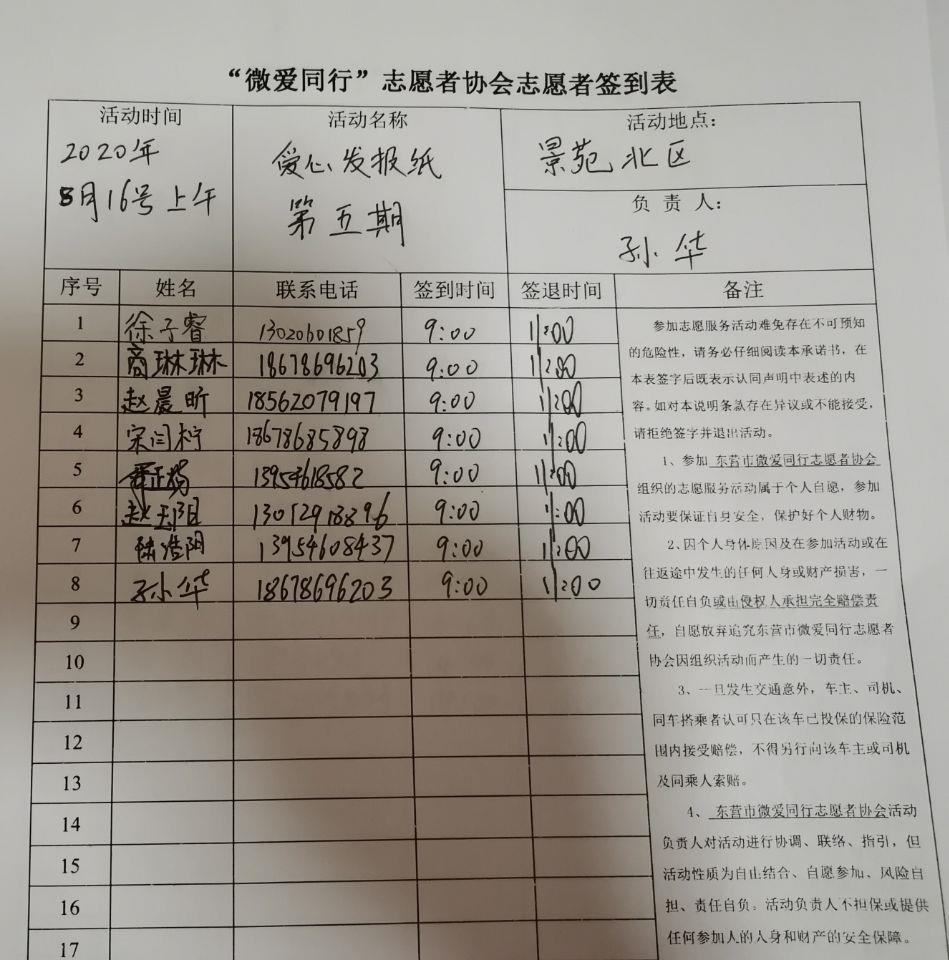 “微爱同行”志愿者协会志愿者签到表
活动时间 活动名称 活动地点:
2020年 爱心发报纸 景苑北区
8月16号上午 第五期
负责人:
孙华
序号 姓名 联系电话 签到时间 签退时间 备注
1 徐子睿 13020601859 9:00 11:00
2 商琳琳 18678696203 9:00 11:00
3 赵晨昕 18562079197 9:00 11:00
4 宋闫柠 18678685898 9:00 11:00
5 13954618582 9:00 11:00
6 赵玉阳 13012918896 9:00 11:00
7 浩阴 13954608437 9:00 11:00
8 孙华 18678696203 9:00 11:00
9
10
11
12
13
14
15
16
17
参加志愿服务活动难免存在不可预知
的危险性，请务必仔细阅读本承诺书，在
本表签字后既表示认同声明中表述的内
容。如对本说明条款存在异议或不能接受，
请拒绝签字并退出活动。
1、参加 东营市微爱同行志愿者协会
组织的志愿服务活动属于个人自愿，参加
活动要保证自身安全，保护好个人财物。
2、因个人身体原因及在参加活动或在
往返途中发生的任何人身或财产损害，一
切责任自负或由侵权人承担完全赔偿责
任，自愿放弃追究东营市微爱同行志愿者
协会因组织活动而产生的一切责任。
3、一旦发生交通意外，车主、司机、
同车搭乘者认可只在该车已投保的保险范
围内接受赔偿，不得另行向该车主或司机
及同乘人索赔。
4、东营市微爱同行志愿者协会活动
负责人对活动进行协调、联络、指引，但
活动性质为自由结合、自愿参加、风险自
担、责任自负。活动负责人不担保或提供
任何参加人的人身和财产的安全保障。